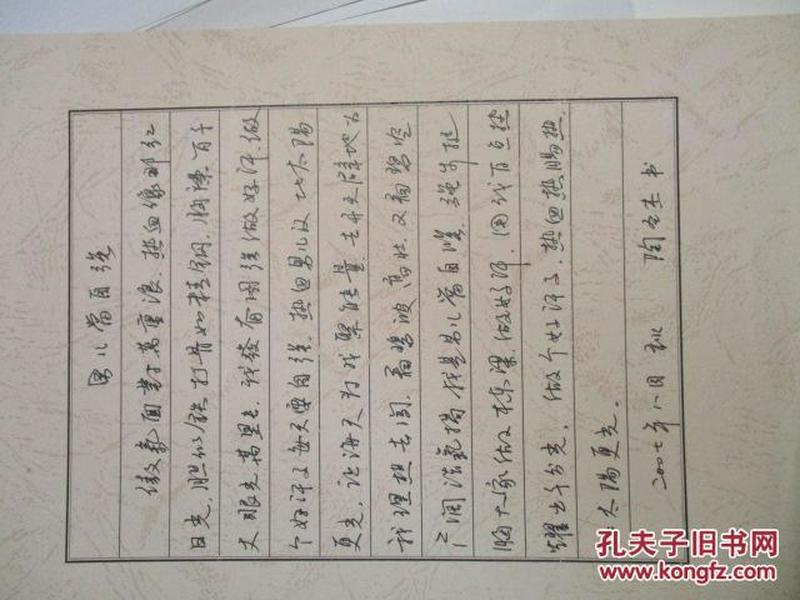 男儿当自强
傲气面对万重浪．热血像那红
日光，胆似铁打骨如精钢．胸襟百千
丈眼光万里长，我发奋图强做好汉．做
个好汉子每天要自强．热血男儿汉比太阳
更光，让海天为我聚能量．去开天辟地为
我理想去闯．看碧波高壮．又看碧空
广阔浩气扬．我是男儿当自强．强步挺
胸大家做栋梁．做好汉．用我百点热
耀出千分光，做个好汉子．热血热肠热
比太阳更光。
二〇〇七年八月 秋 陶 书
孔夫子旧书网
www.kongfz.com